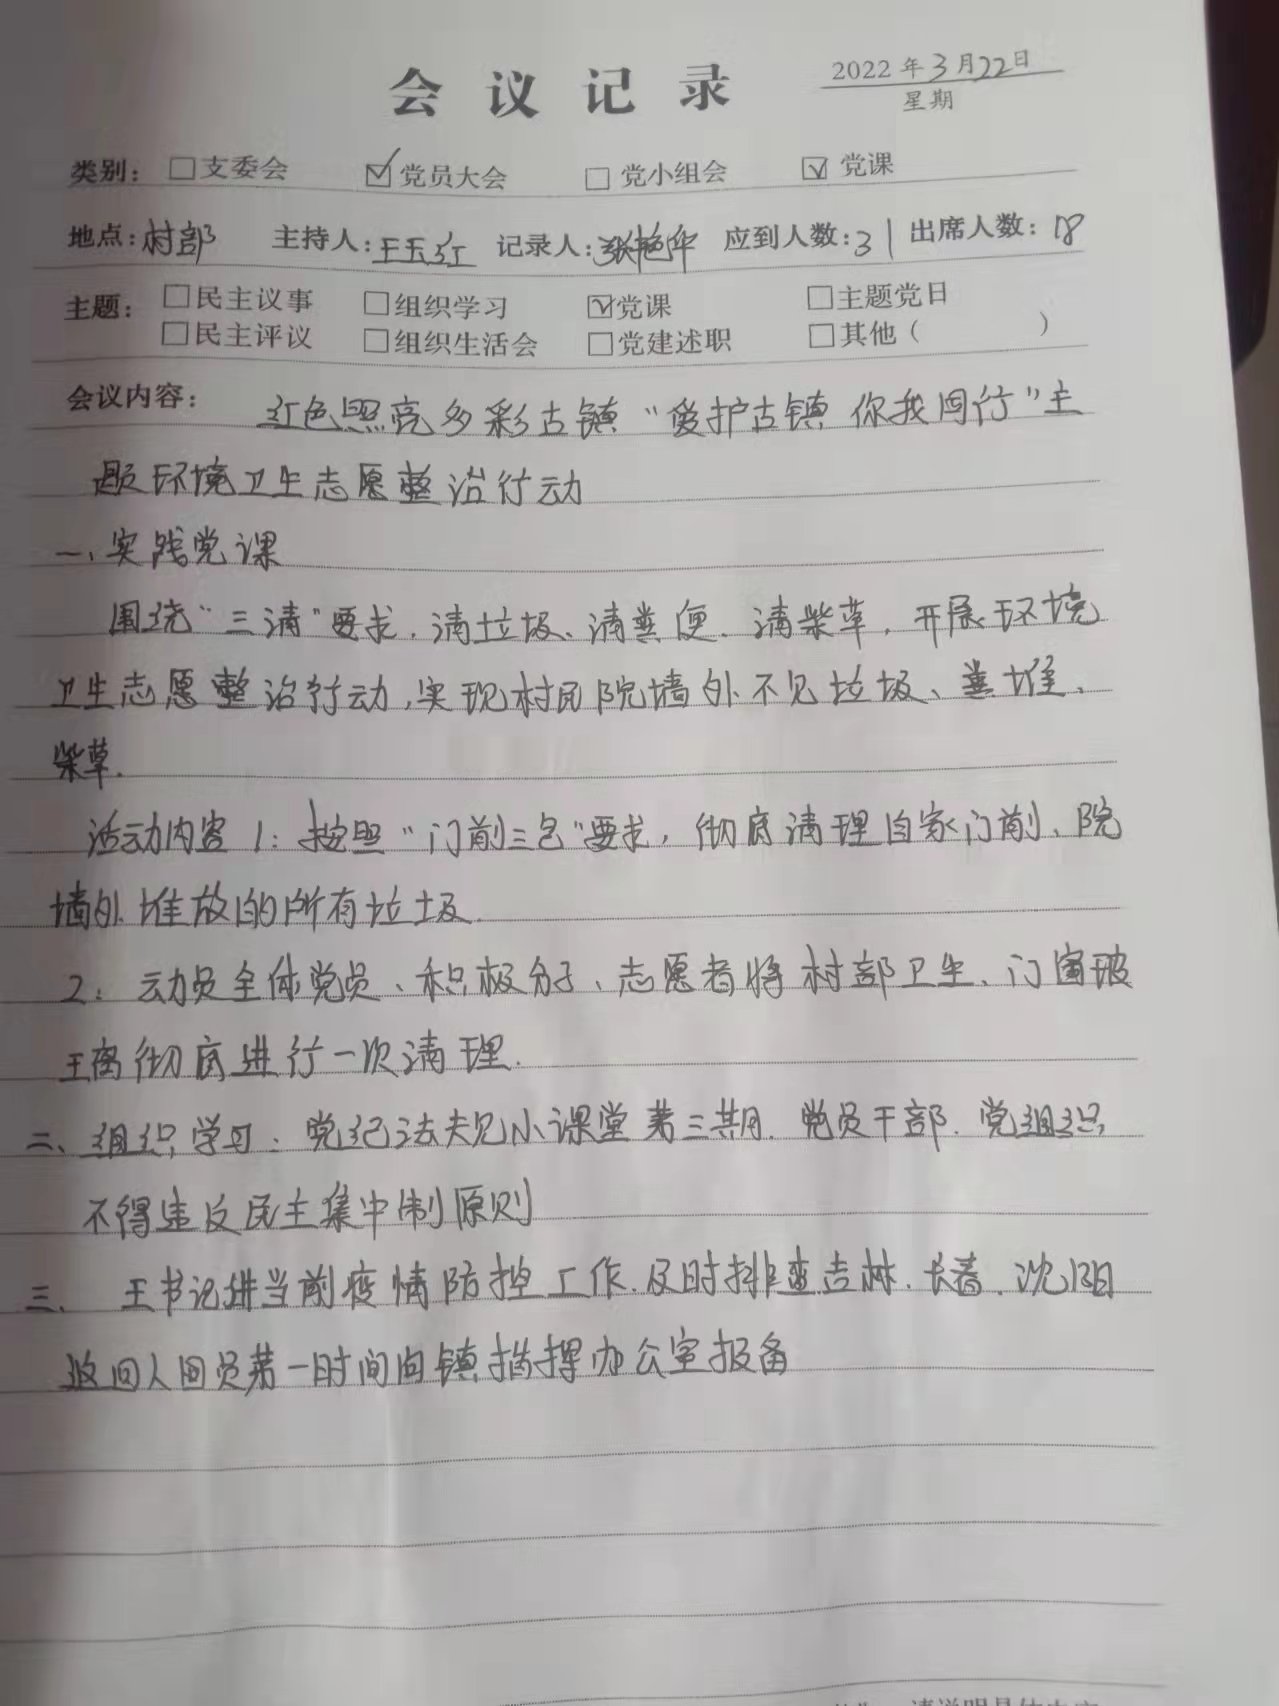 会议记录
2022年3月22日
星期
类别：□支委会 ☑党员大会 □党小组会 ☑党课
地点：村部 主持人：王玉红 记录人：张艳华 应到人数：31 出席人数：18
主题：□民主议事 □组织学习 ☑党课 □主题党日
□民主评议 □组织生活会 □党建述职 □其他（ ）
会议内容： 红色照亮多彩古镇“爱护古镇 你我同行”主
题环境卫生志愿整治行动
一、实践党课
围绕“三清”要求，清垃圾、清粪便、清柴草，开展环境
卫生志愿整治行动，实现村民院墙外不见垃圾、粪堆、
柴草.
活动内容1：按照“门前三包”要求，彻底清理自家门前、院
墙外堆放的所有垃圾.
2：动员全体党员、积极分子、志愿者将村部卫生、门窗玻
璃彻底进行一次清理.
二、组织学习：党纪法规小课堂第三期.党员干部.党组织
不得违反民主集中制原则
三、王书记讲当前疫情防控工作.及时排查吉林.长春.沈阳
返回人回员第一时间向镇指挥办公室报备